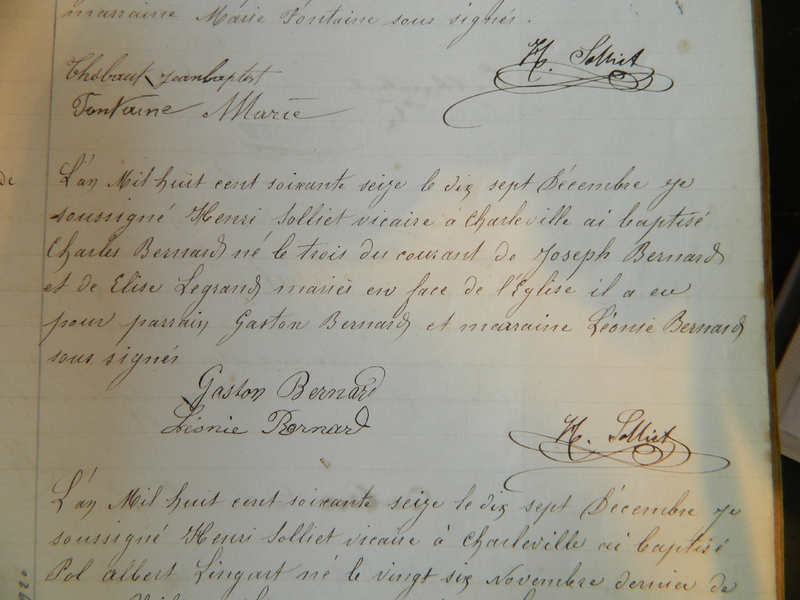 marraine Marie Fontaine sous signés.
Thébaut Jean baptist
H. Solliet
Fontaine Marie
de
L'an Mil huit cent soixante seize le dix sept Décembre je
soussigné Henri Solliet vicaire à Charleville ai baptisé
Charles Bernard né le trois du courant de Joseph Bernard
et de Elise Legrand mariés en face de l'Eglise il a eu
pour parrain Gaston Bernard et marraine Léonie Bernard
sous signés
Gaston Bernard
Léonie Bernard
H. Solliet
L'an Mil huit cent soixante seize le dix sept Décembre je
soussigné Henri Solliet vicaire à Charleville ai baptisé
Pol albert Lingart né le vingt six Novembre dernier de